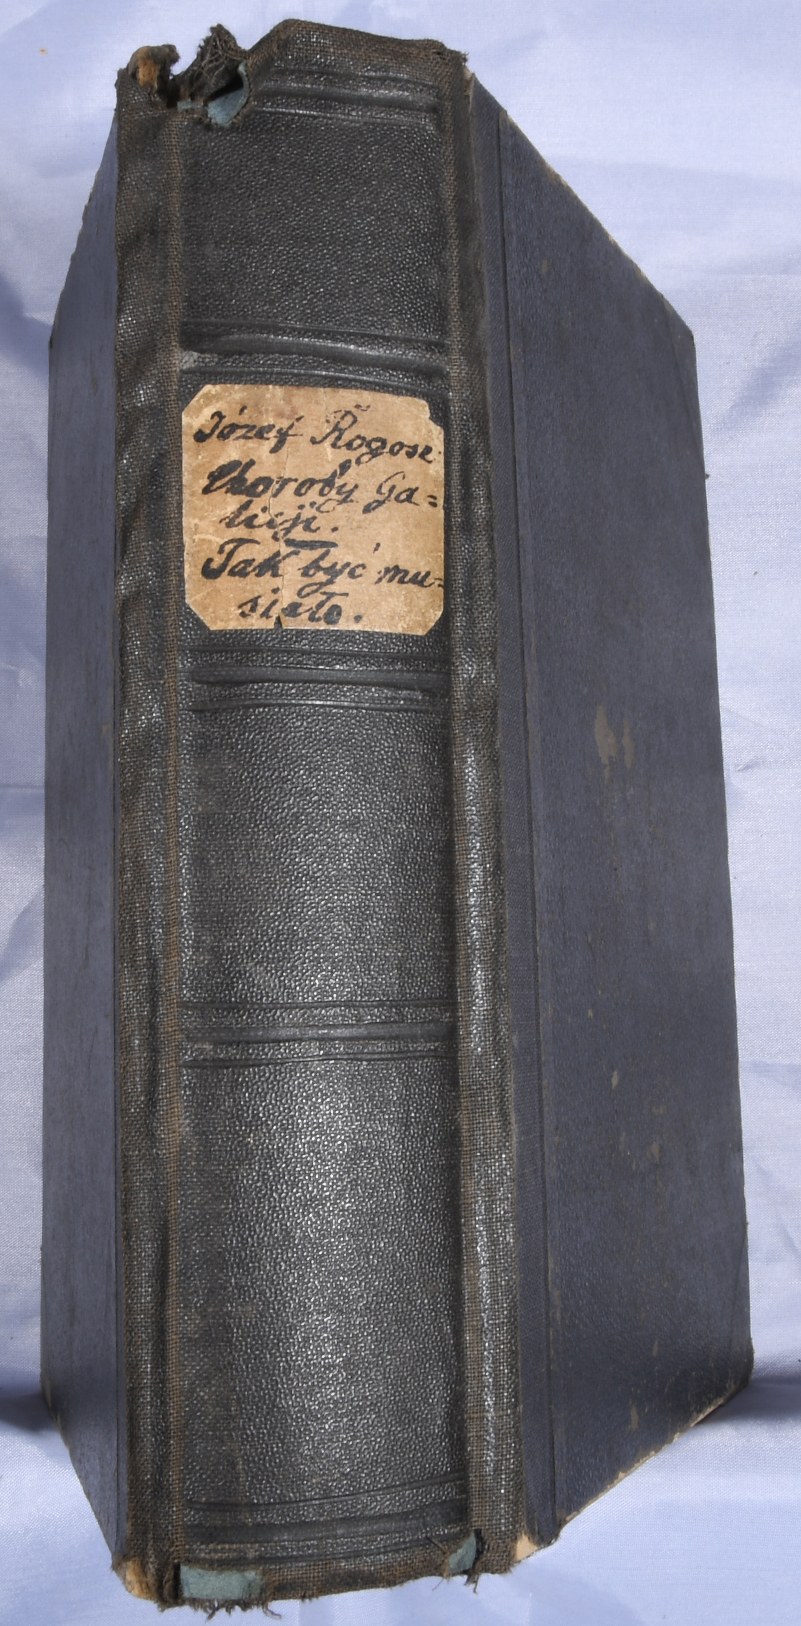 Józef Rogosz
Choroby Ga=
licji.
Tak być mu=
siało.